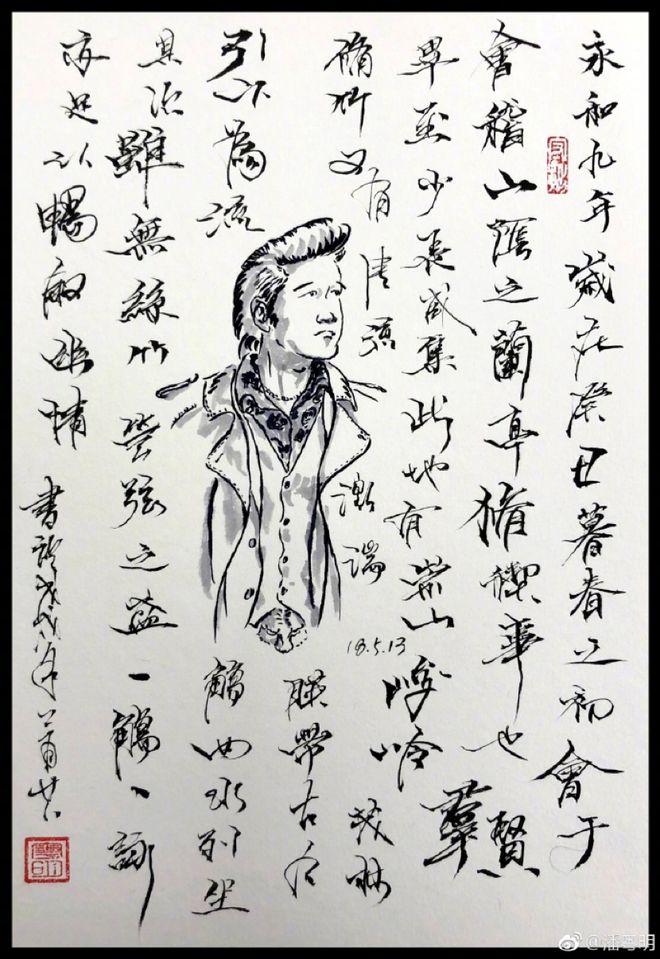 永和九年歲在癸丑暮春之初會于
會稽山陰之蘭亭脩禊事也羣賢
畢至少長咸集此地有崇山峻嶺茂林
脩竹又有清流激湍
暎帶左右
引以為流觴曲水列坐
其次雖無絲竹管弦之盛一觴一詠
亦足以暢敘幽情
書於戊戌年
18.5.13
@潘粤明